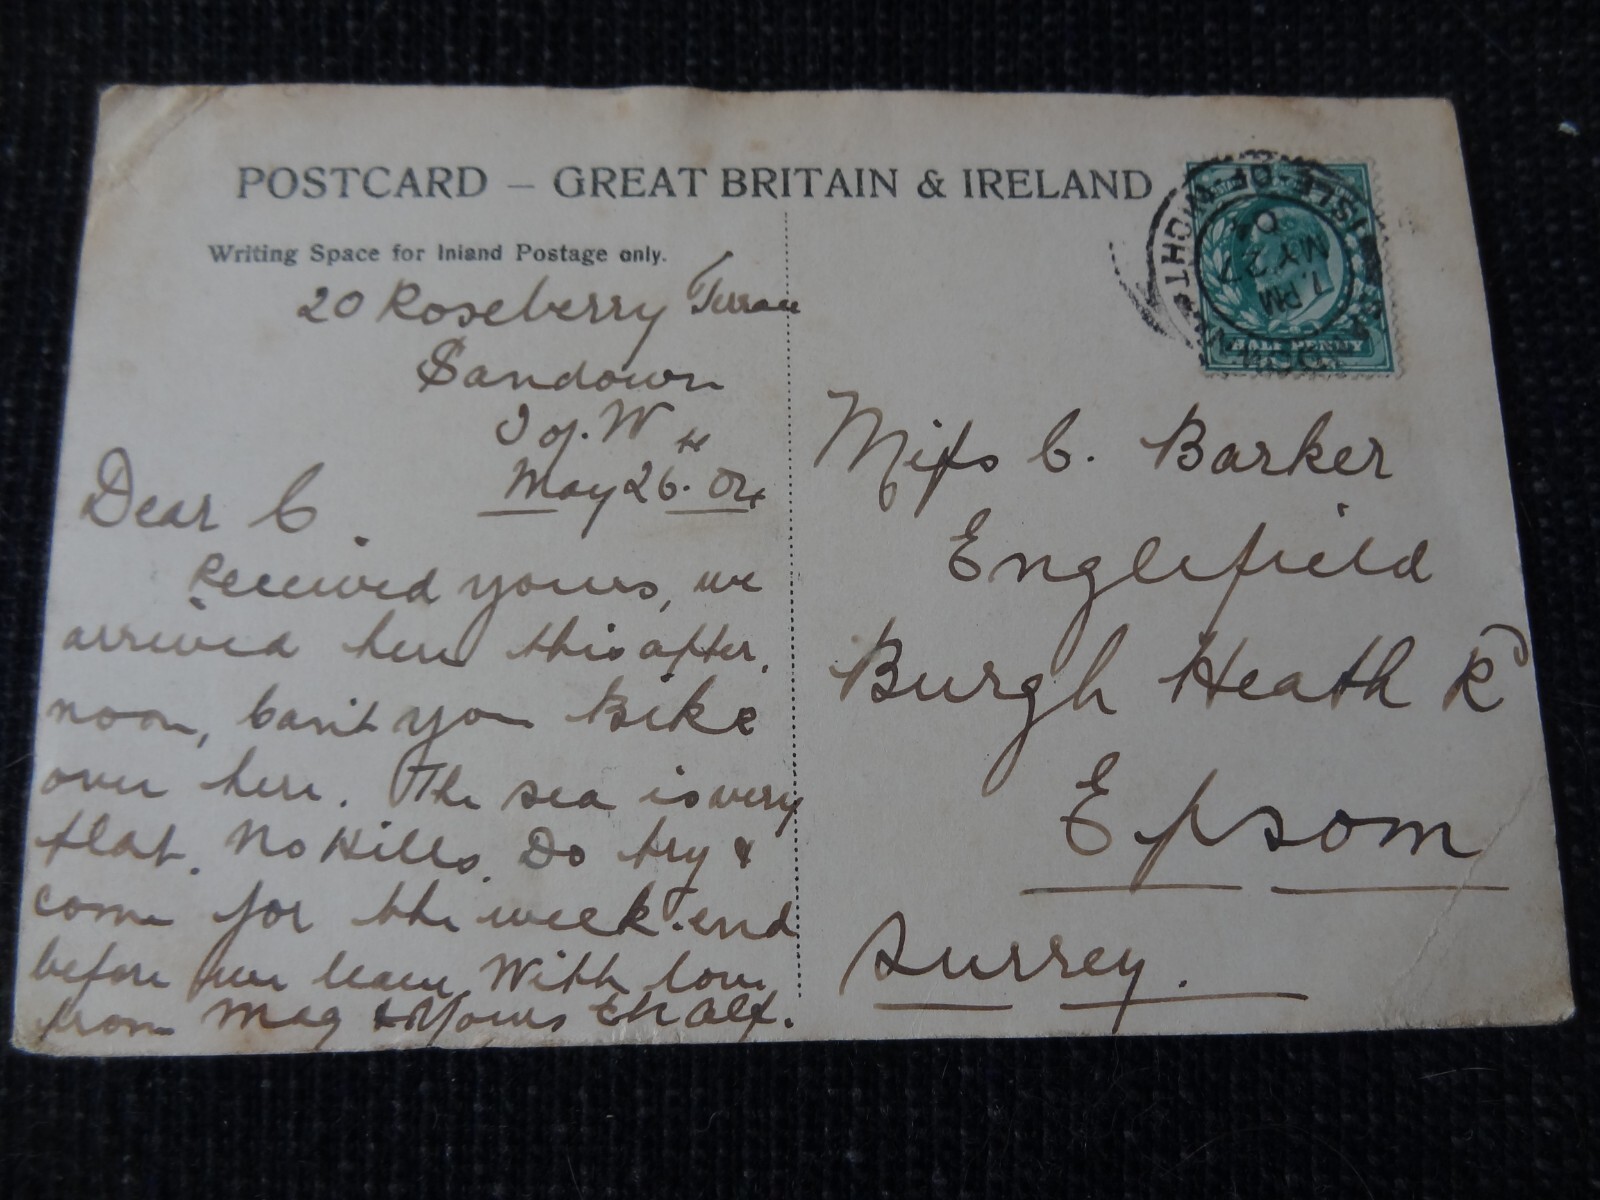 POSTCARD – GREAT BRITAIN & IRELAND
Writing Space for Inland Postage only.
20 Roseberry Terrace
Sandown
I of. W
May 26th. 04
Dear C.
Received yours, we
arrived here this after.
noon, Can't you Bike
over here. The sea is very
flat. No Hills. Do try &
come for the week-end
before we leave With love
from Mag & Yours Alf.
Miss C. Barker
Englefield
Burgh Heath Rd
Epsom
Surrey.
ISLE-OF-WIGHT
7 PM
MY 27
HALF PENNY